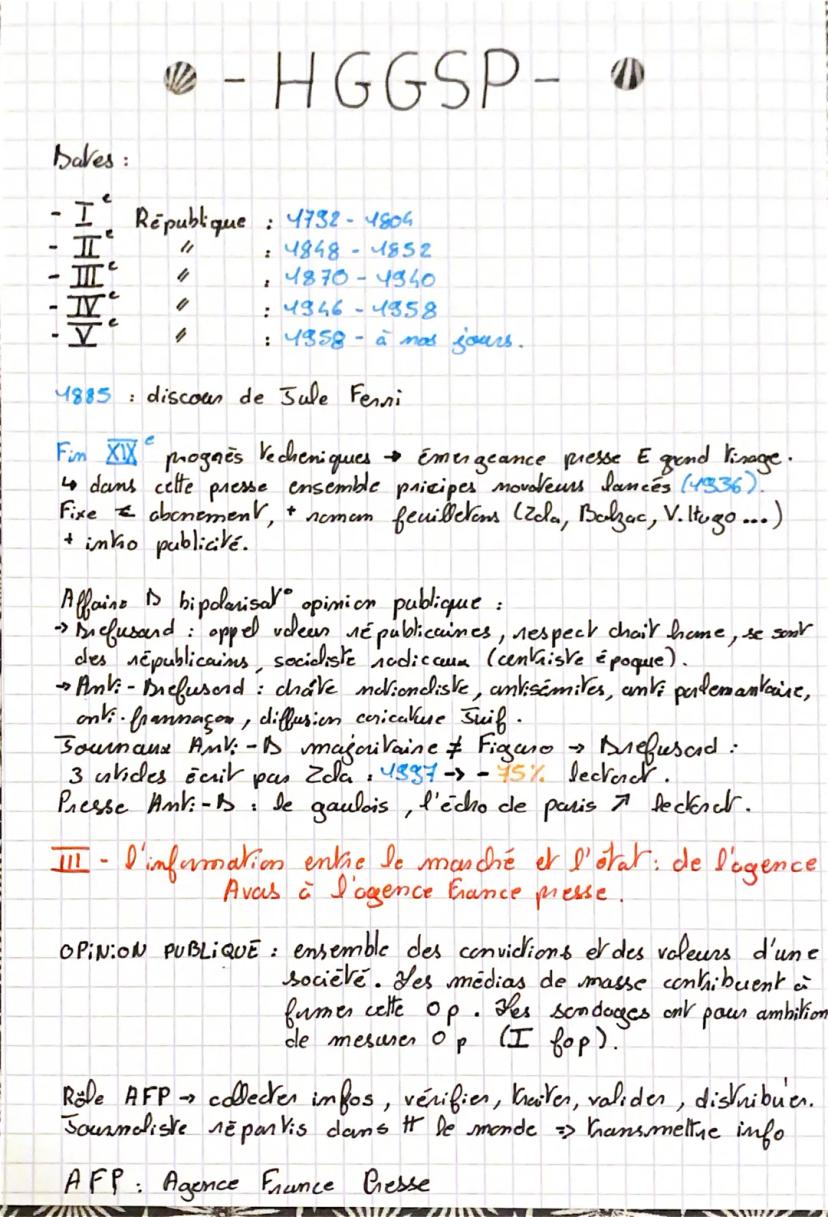 - HGGSP -
Dates :
- Ie République : 1792 - 1804
- IIe " : 1848 - 1852
- IIIe " : 1870 - 1940
- IVe " : 1946 - 1958
- Ve " : 1958 - à nos jours.
1885 : discour de Jule Ferri
Fin XIXe progrès techeniques → émergeance presse E grand tirage.
↳ dans cette presse ensemble pricipes novateurs lancés (1936).
Fixe € abonement, + roman feuilletons (Zola, Balzac, V. Hugo ...)
+ intro publicité.
Affaire D bipolarisat° opinion publique :
→ Drefusard : appel valeur républicaines, respect chait home, se sont
des républicains, socialiste radicaux (centriste époque).
→ Anti - Drefusard : châte nationaliste, antisémites, anti parlemantaire,
anti-frannaçon, diffusion caricature Juif.
Journaux Anti - D majoritaire ≠ Figaro → Drefusard :
3 articles écrit par Zola : 1997 → - 75% lectorat.
Presse Anti - D : le gaulois, l'écho de paris ↗ lectorat.
III - l'information entre le marché et l'état : de l'agence
Avas à l'agence France presse.
OPINION PUBLIQUE : ensemble des convictions et des valeurs d'une
société. Les médias de masse contribuent à
former cette Op. Les sondages ont pour ambition
de mesurer Op (I fop).
Rôle AFP → collecter infos, vérifier, traiter, valider, distribuer.
Journaliste répartis dans tt le monde => transmettre info
AFP : Agence France Presse